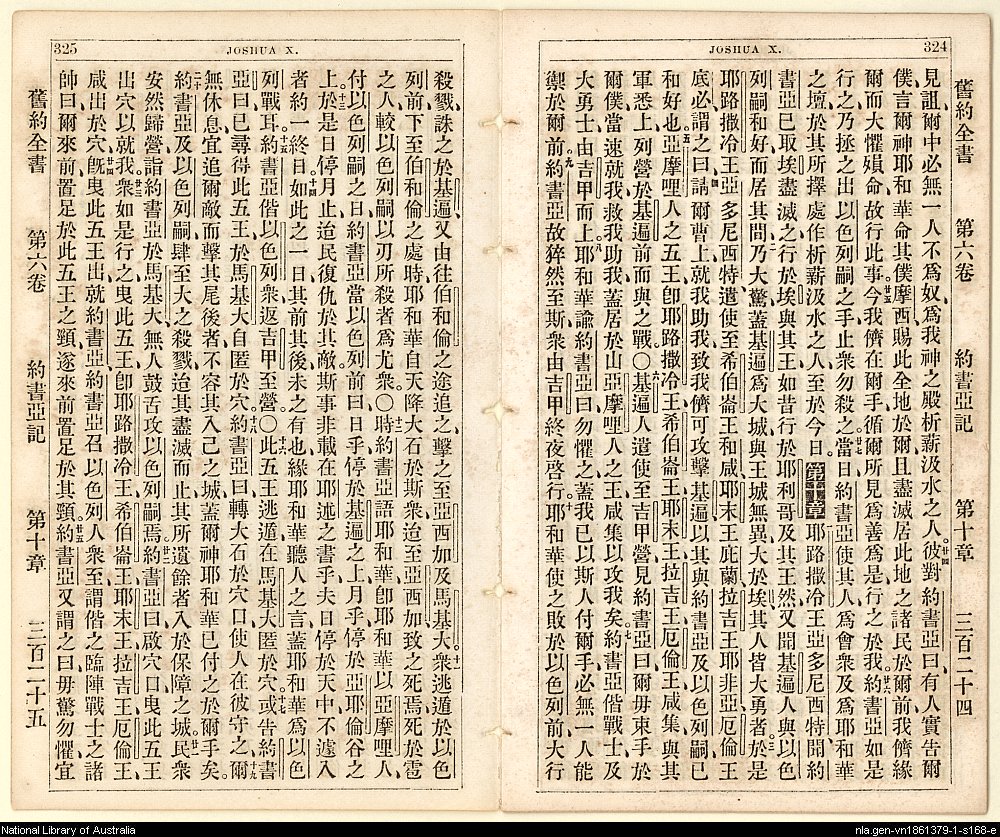 324
JOSHUA X.
舊約全書 第六卷 約書亞記 第十章 三百二十四
見詛爾中必無一人不爲奴爲我神之殿析薪汲水之人廿四彼對約書亞曰有人實告爾
僕言爾神耶和華命其僕摩西賜此全地於爾且盡滅居此地之諸民於爾前我儕緣
爾而大懼殞命故行此事廿五今我儕在爾手循爾所見爲善爲是行之於我廿六約書亞如是
行之乃拯之出以色列嗣之手止衆勿殺之廿七當日約書亞使其人爲會衆及爲耶和華
之壇於其所擇處作析薪汲水之人至於今日第十章耶路撒冷王亞多尼西特聞約
書亞已取埃盡滅之行於埃與其王如昔行於耶利哥及其王然又聞基遍人與以色
列嗣和好而居其間二乃大驚蓋基遍爲大城與王城無異大於埃其人皆大勇者三於是
耶路撒冷王亞多尼西特遣使至希伯崙王和咸耶末王庇蘭拉吉王耶非亞厄倫王
底必謂之曰四請爾曹上就我助我致我儕可攻擊基遍以其與約書亞及以色列嗣已
和好也五亞摩哩人之五王卽耶路撒冷王希伯崙王耶末王拉吉王厄倫王咸集與其
軍悉上列營於基遍前而與之戰〇六基遍人遣使至吉甲營見約書亞曰爾毋束手於
爾僕當速就我救我助我蓋居於山亞摩哩人之王咸集以攻我矣七約書亞偕戰士及
大勇士由吉甲而上八耶和華諭約書亞曰勿懼之蓋我已以斯人付爾手必無一人能
禦於爾前九約書亞故猝然至斯衆由吉甲終夜啓行十耶和華使之敗於以色列前大行
325
JOSHUA X.
殺戮誅之於基遍又由往伯和倫之途追之擊之至亞西加及馬基大十一衆逃遁於以色
列前下至伯和倫之處時耶和華自天降大石於斯衆迨至亞西加致之死焉死於雹
之人較以色列嗣以刃所殺者爲尤衆〇十二時約書亞語耶和華卽耶和華以亞摩哩人
付以色列嗣之日約書亞當以色列前曰日乎停於基遍之上月乎停於亞耶倫谷之
上十三於是日停月止迨民復仇於其敵斯事非載在耶述之書乎夫日停於天中不遽入
者約一終日十四如此之一日其前其後未之有也緣耶和華聽人之言蓋耶和華爲以色
列戰耳十五約書亞偕以色列衆返吉甲至營〇十六此五王逃遁在馬基大匿於穴十七或告約書
亞曰已尋得此五王於馬基大自匿於穴十八約書亞曰轉大石於穴口使人在彼守之十九爾
無休息宜追爾敵而擊其尾後者不容其入己之城蓋爾神耶和華已付之於爾手矣
二十約書亞及以色列嗣肆至大之殺戮迨其盡滅而止其所遺餘者入於保障之城廿一民衆
安然歸營詣約書亞於馬基大無人鼓舌攻以色列嗣焉廿二約書亞曰啟穴口曳此五王
出穴以就我廿三衆如是行之曳此五王卽耶路撒冷王希伯崙王耶末王拉吉王厄倫王
咸出於穴廿四旣曳此五王出就約書亞約書亞召以色列人衆至謂偕之臨陣戰士之諸
帥曰爾來前置足於此五王之頸遂來前置足於其頸廿五約書亞又謂之曰毋驚勿懼宜
舊約全書 第六卷 約書亞記 第十章 三百二十五
National Library of Australia
nla.gen-vn1861379-1-s168-e